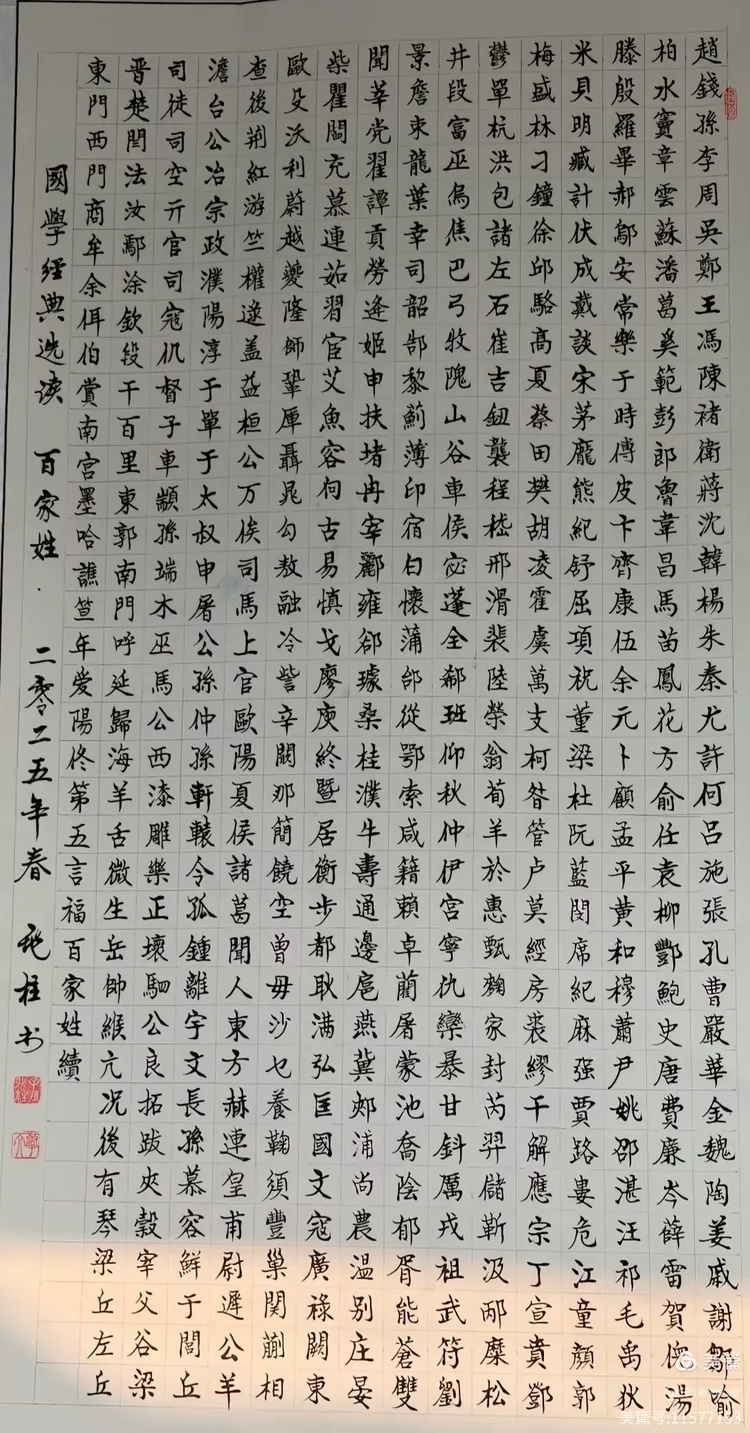 趙錢孫李周吳鄭王馮陳褚衛蔣沈韓楊朱秦尤許何呂施張孔曹嚴華金魏陶姜戚謝鄒喻
柏水竇章雲蘇潘葛奚範彭郎魯韋昌馬苗鳳花方俞任袁柳酆鮑史唐費廉岑薛雷賀倪湯
滕殷羅畢郝鄔安常樂于時傅皮卞齊康伍余元卜顧孟平黃和穆蕭尹姚邵湛汪祁毛禹狄
米貝明臧計伏成戴談宋茅龐熊紀舒屈項祝董梁杜阮藍閔席紀麻强賈路婁危江童顏郭
梅盛林刁鐘徐邱駱高夏蔡田樊胡凌霍虞萬支柯昝管卢莫經房裘繆干解應宗丁宣賁鄧
鬱單杭洪包諸左石崔吉鈕龔程嵇邢滑裴陸榮翁荀羊於惠甄麴家封芮羿儲靳汲邴糜松
井段富巫烏焦巴弓牧隗山谷車侯宓蓬全郗班仰秋仲伊宮寧仇欒暴甘鈄厲戎祖武符劉
景詹束龍葉幸司韶郜黎薊薄印宿白懷蒲邰從鄂索咸籍賴卓藺屠蒙池喬陰郁胥能蒼雙
聞莘党翟譚貢勞逄姬申扶堵冉宰酈雍郤璩桑桂濮牛壽通邊扈燕冀郟浦尚農温别庄晏
柴瞿閻充慕連茹習宦艾魚容向古易慎戈廖庾終暨居衡步都耿满弘匡國文寇廣祿闕東
歐殳沃利蔚越夔隆師鞏厙聶晁勾敖融冷訾辛闞那簡饒空曾毋沙乜養鞠須豐巢関蒯相
查後荆紅游竺權逯盖益桓公万俟司馬上官歐陽夏侯諸葛聞人東方赫連皇甫尉遲公羊
澹台公冶宗政濮陽淳于單于太叔申屠公孫仲孫軒轅令狐鍾離宇文長孫慕容鮮于閭丘
司徒司空亓官司寇仉督子車顓孫端木巫馬公西漆雕樂正壤駟公良拓跋夾穀宰父谷梁
晋楚閆法汝鄢涂欽段干百里東郭南門呼延歸海羊舌微生岳帥緱亢况後有琴梁丘左丘
東門西門商牟余佴伯賞南宮墨哈譙笪年爱陽佟第五言福百家姓續
國學經典选读 百家姓·二零二五年春 柱书
美篇
美篇号:11577193